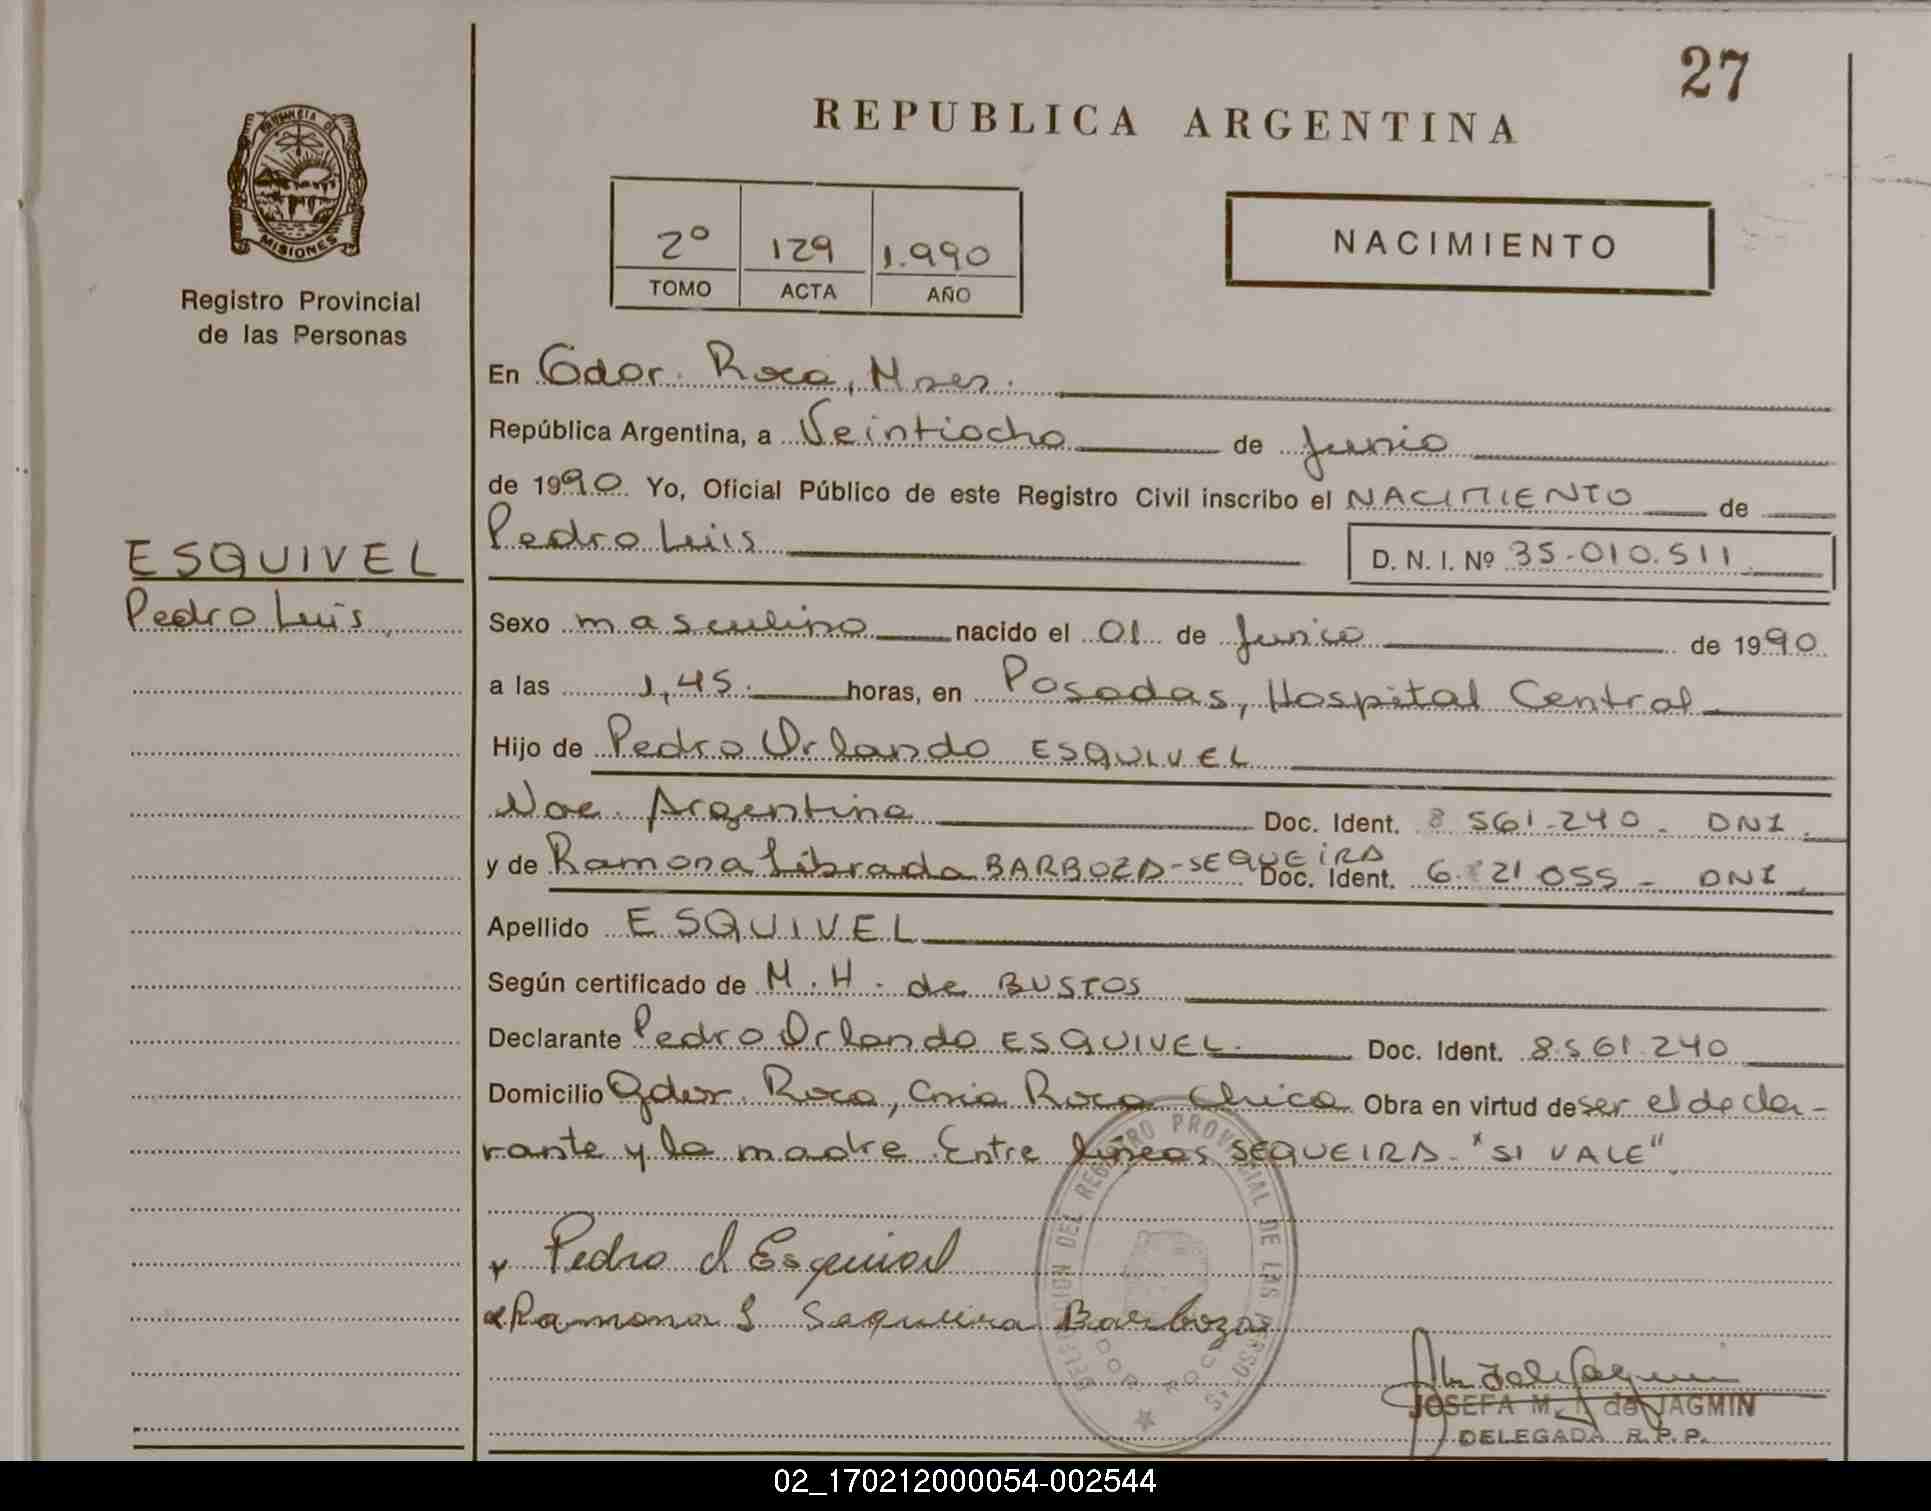 27
REPUBLICA ARGENTINA
PROVINCIA DE
MISIONES
Registro Provincial
de las Personas
2º 129 1.990
TOMO ACTA AÑO
NACIMIENTO
En Gdor. Roca, Mnes.
República Argentina, a Veintiocho de Junio
de 1990 Yo, Oficial Público de este Registro Civil inscribo el NACIMIENTO de
Pedro Luis D. N. I. Nº 35.010.511
ESQUIVEL
Pedro Luis
Sexo masculino nacido el 01 de Junio de 1990
a las 1,45 horas, en Posadas, Hospital Central
Hijo de Pedro Orlando ESQUIVEL
Nac. Argentina Doc. Ident. 8 561.240 - DNI
y de Ramona Librada BARBOZA-SEQUEIRA Doc. Ident. 6. 21 055 - DNI
Apellido ESQUIVEL
Según certificado de M. H. de BUSTOS
Declarante Pedro Orlando ESQUIVEL Doc. Ident. 8.561.240
Domicilio Gdor. Roca, Cnia Roca Chica Obra en virtud de ser el decla-
rante y la madre. Entre líneas SEQUEIRA "SI VALE"
Pedro O Esquivel
Ramona L Sequeira Barboza
DELEGACION DEL REGISTRO PROVINCIAL DE LAS PERSONAS
GDOR ROCA
JOSEFA M. de JAGMIN
DELEGADA R. P. P.
02_170212000054-002544